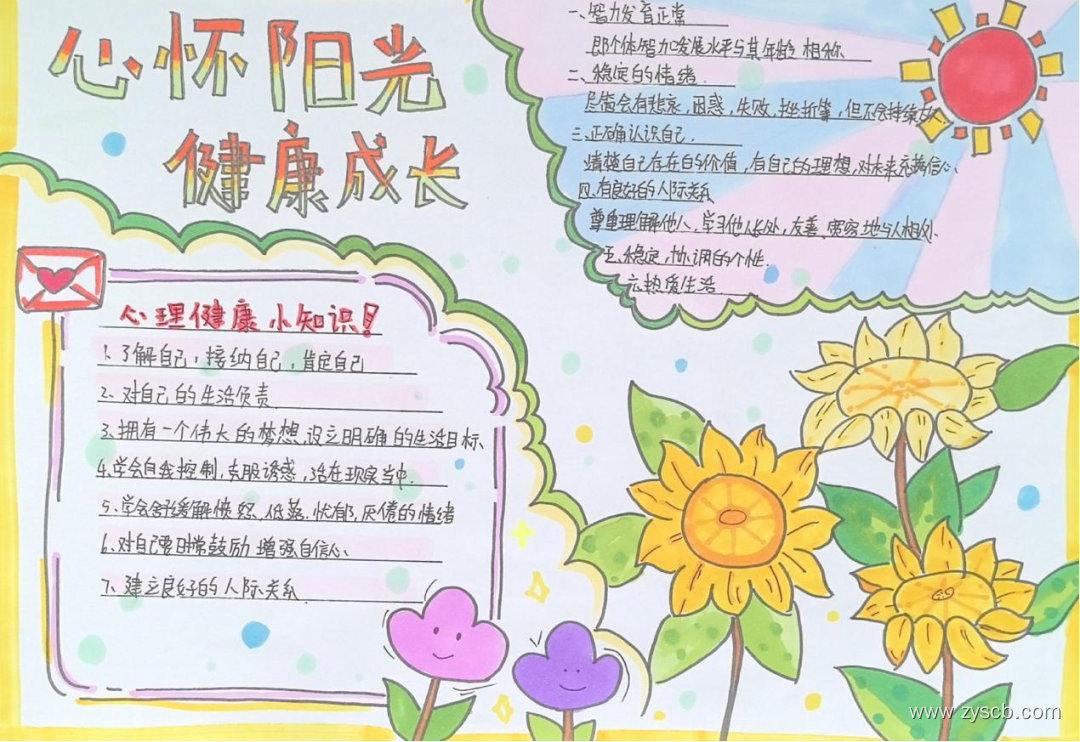 心怀阳光
健康成长
心理健康小知识!
1、了解自己,接纳自己,肯定自己
2、对自己的生活负责
3、拥有一个伟大的梦想、设立明确的生活目标
4、学会自我控制,克服诱惑,活在现实当中.
5、学会舒缓解愤怒、低落、忧郁、厌倦的情绪
6、对自己要日常鼓励 增强自信心
7、建立良好的人际关系
一、智力发育正常
即个体智力发展水平与其年龄相称
二、稳定的情绪.
尽管会有悲哀,困惑,失败,挫折等,但不会持续
三、正确认识自己.
清楚自己存在的价值,有自己的理想,对未来充满信心、
四、有良好的人际关系
尊重理解他人,学习他人长处,友善、宽容地与人相处.
五、稳定,协调的个性.
六热爱生活
www.zyscb.com